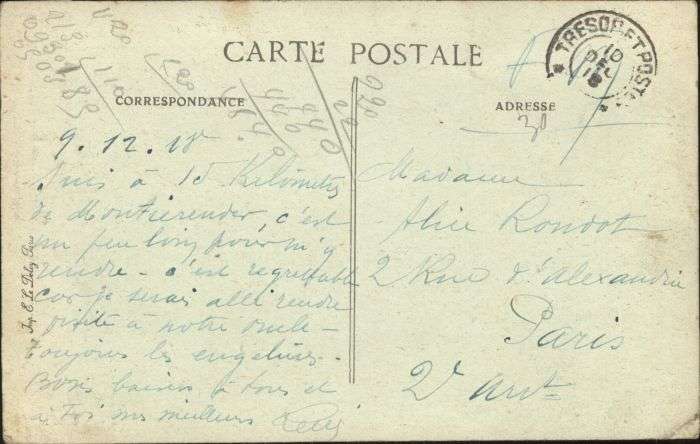 CARTE POSTALE
CORRESPONDANCE
ADRESSE
TRESOR ET POSTES
10
DEC
18
9.12.18
Suis à 15 Kilomètres
de Montierender, c'est
un peu loin pour m'y
rendre - c'est regrettable
car je serais allé rendre
visite à notre oncle -
toujours les engelures.
Bons baisers à tous et
à toi mes meilleurs
Madame
Alice Rondot
2 Rue d'Alexandrie
Paris
2e Arrt
Imp. E. Le Deley, Paris